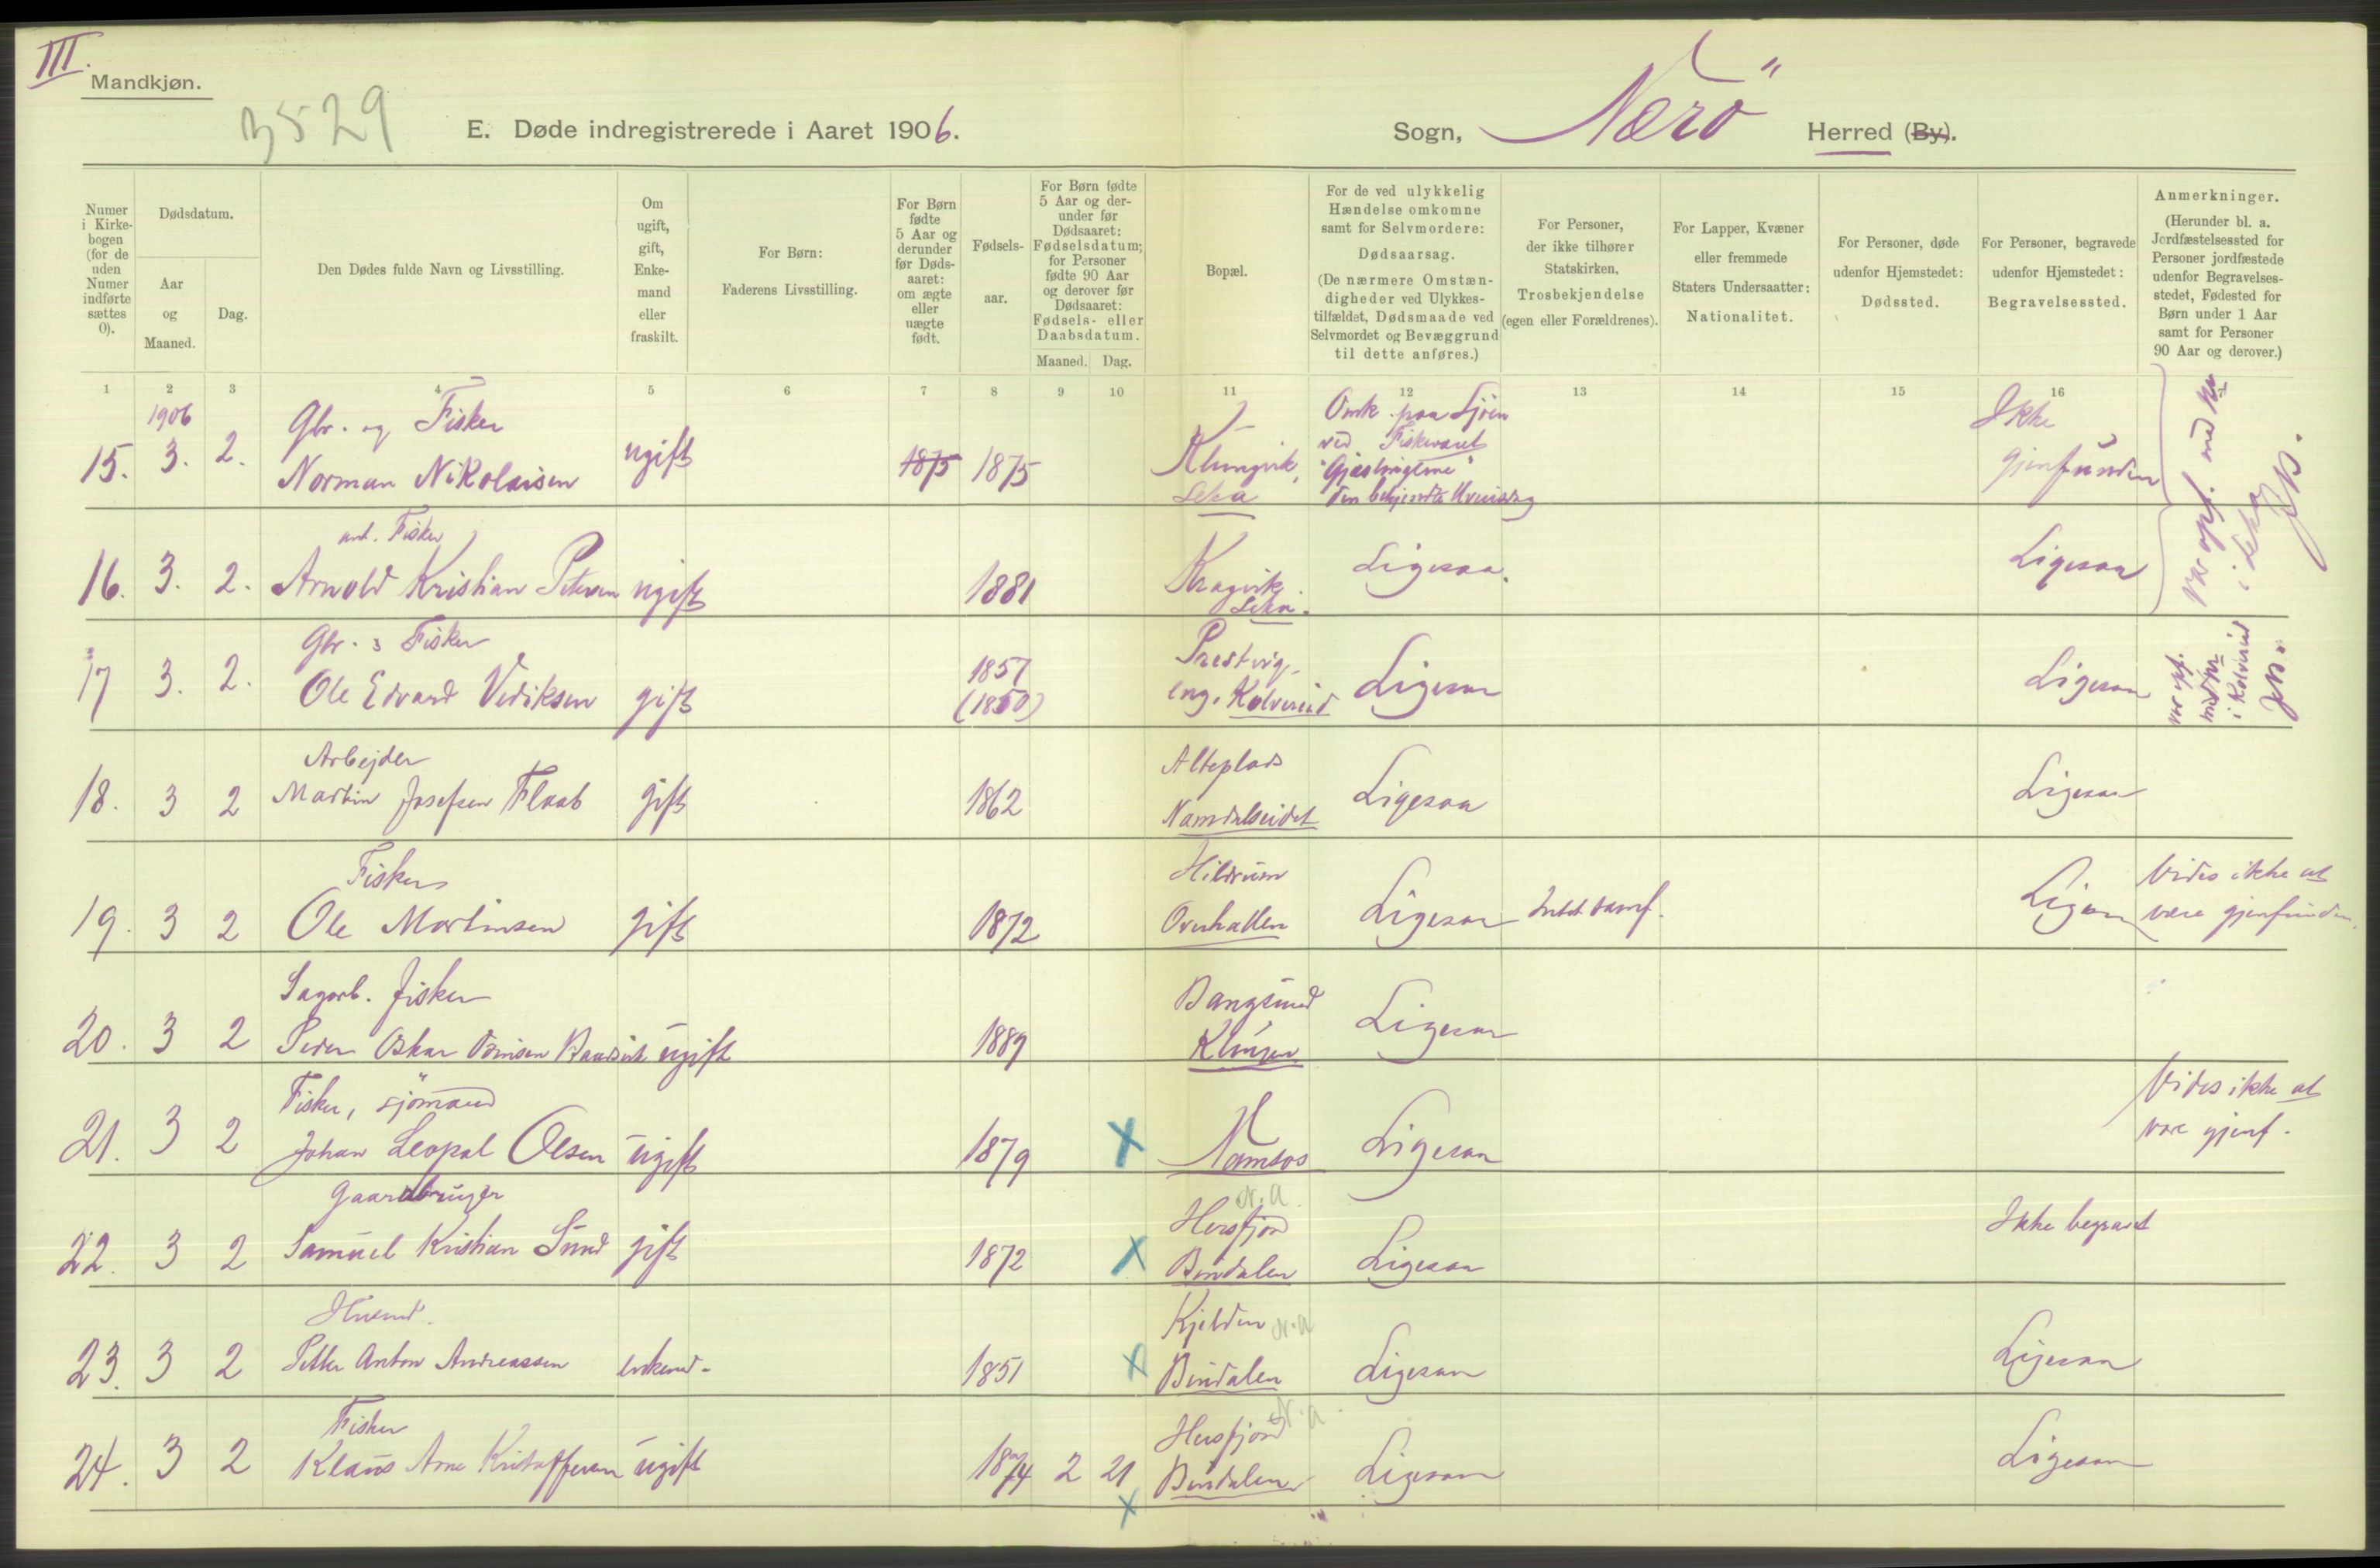 III.
Mandkjøn.
3529
E. Døde indregistrerede i Aaret 1906.
Sogn, Nærö Herred (By).
Numer i Kirke-bogen (for de uden Numer indførte sættes 0).
Dødsdatum.
Aar og Maaned.
Dag.
Den Dødes fulde Navn og Livsstilling.
Om ugift, gift, Enke-mand eller fraskilt.
For Børn: Faderens Livsstilling.
For Børn fødte 5 Aar og derunder før Døds-aaret: om ægte eller uægte født.
Fødsels-aar.
For Børn fødte 5 Aar og der-under før Dødsaaret: Fødselsdatum; for Personer fødte 90 Aar og derover før Dødsaaret: Fødsels- eller Daabsdatum.
Maaned. Dag.
Bopæl.
For de ved ulykkelig Hændelse omkomne samt for Selvmordere: Dødsaarsag. (De nærmere Omstæn-digheder ved Ulykkes-tilfældet, Dødsmaade ved Selvmordet og Bevæggrund til dette anføres.)
For Personer, der ikke tilhører Statskirken, Trosbekjendelse (egen eller Forældrenes).
For Lapper, Kvæner eller fremmede Staters Undersaatter: Nationalitet.
For Personer, døde udenfor Hjemstedet: Dødssted.
For Personer, begravede udenfor Hjemstedet: Begravelsessted.
Anmerkninger. (Herunder bl. a. Jordfæstelsessted for Personer jordfæstede udenfor Begravelses-stedet, Fødested for Børn under 1 Aar samt for Personer 90 Aar og derover.)
1 2 3 4 5 6 7 8 9 10 11 12 13 14 15 16
1906 Gbr. og Fisker Omk. paa Sjöen Ikke
ved Fiskeværet
15. 3. 2. Norman Nikolaisen ugift 1875 1875 Klungvik, "Gjæslingerne" gjenfunden
Leka
Fisker
16. 3. 2. Arnold Kristian Petersen ugift 1881 Kragvik Ligesaa. Ligesaa
Leka.
i Leka
Gbr. & Fisker 1857 Prestvig-
17 3. 2. Ole Edvard Vediksen gift (1850) eng, Kolvereid Ligesaa Ligesaa
i Kolvereid
Arbejder Alteplads
18. 3 2 Martin Josefsen Flaat gift 1862 Namdalseidet Ligesaa Ligesaa
Fisker Hildrum Vides ikke at
19. 3 2 Ole Martinsen gift 1872 Overhallen Ligesaa Ligesaa være gjenfunden.
Sagarb. Fisker Bangsund
20. 3 2 Peder Oskar ugift 1889 Klingen Ligesaa
Fisker, sjömand Vides ikke at
21. 3 2 Johan Leopol Olsen ugift 1879 X Namsos Ligesaa være gjenf.
Gaardbruger N.a. Hersfjord
22. 3 2 Samuel Kristian Sund gift 1872 X Bindalen Ligesaa Ikke begravet
Husmd. Kjelden N.a
23. 3 2 Petter Anton Andreassen enkemd. 1851 X Bindalen Ligesaa Ligesaa
Fisker Hersfjord N.a.
24. 3 2 Klaus Arne Kristoffersen ugift 1874 2 21 Bindalen Ligesaa Ligesaa
X